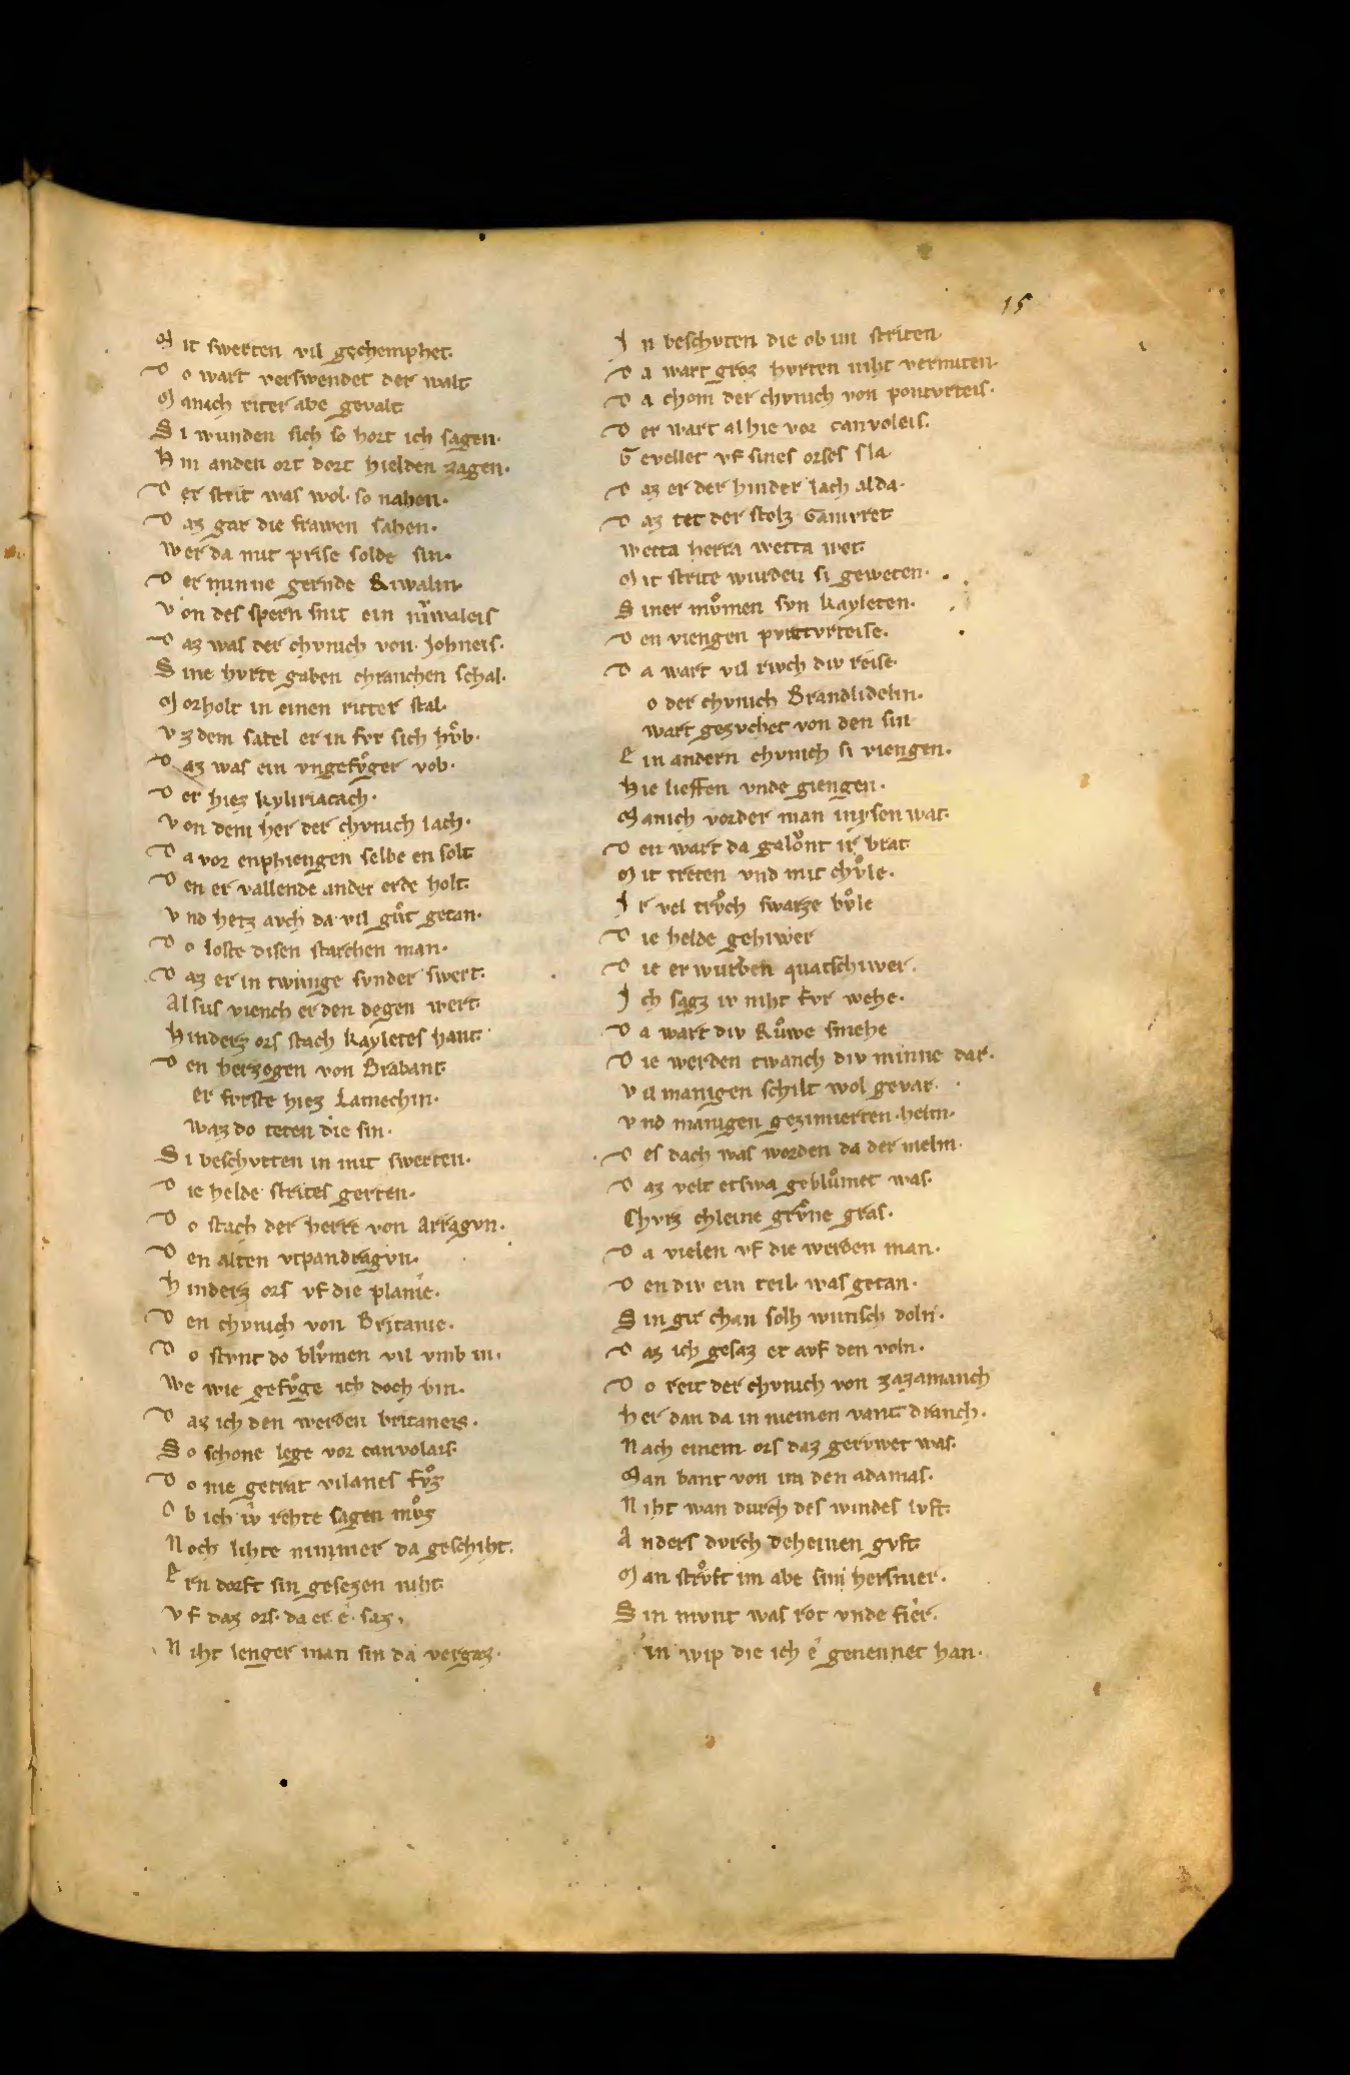 15
M it swerten vil gechemphet.
D o wart verswendet der walt
M anich riter abe gevalt
S i wunden sich so hort ich sagen.
H in anden ort dort hielden zagen.
D er strit was wol so nahen.
D az gar die frawen sahen.
W er da mit prise solde sin.
D er minne gernde Riwalin.
V on des spern snit ein niͮwaleis
D az was der chvnich von Johneis.
S ine hvrte gaben chranchen schal.
M orholt in einen ritter stal.
V z dem satel er in fvr sich hvͦb.
D az was ein vngefvͦger vob.
D er hiez kyliriacach.
V on dem her der chvnich lach.
D a vor enphiengen selbe en solt
D en er vallende ander erde holt.
V nd hetz avch da vil gvͦt getan.
D o loste disen starchen man.
D az er in twunge svnder swert.
Al sus viench er den degen wert.
Hinderz ors stach kayletes hant.
D en herzogen von Brabant.
er fvrste hiez Lamechin.
waz do teten die sin.
S i beschvtten in mit swerten.
D ie helde strites gerten.
D o stach der herre von Arragvn.
D en alten vtpandragvn.
H inderz ors vf die planîe.
D en chvnich von Britanie.
D o stvnt do blvͦmen vil vmb in.
We wie gefvͦge ich doch bin.
D az ich den werden britaneis.
S o schone lege vor canvolais.
D o nie getrat vilanes fvͦz
O b ich iv rehte sagen mvͦz
N och lihte nimmer da geschiht.
E rn dorft sin gesezen niht.
V f daz ors. da er ê. saz.
N iht lenger man sin da vergaz.
I n beschvten die ob im striten
D a wart groz hvrten niht vermiten.
D a chom der chvnich von pontvrteis.
D er wart al hie vor canvoleis.
G evellet vf sines orses sla
D az er der hinder lach al da.
D az tet der stolz Gamvret
wetta herra wetta wet.
M it strite wurden si geweten.
S iner mvͦmen svn kayleten.
D en viengen pvntvrteise.
D a wart vil rivch div reise
o der chvnich Brandlidelin.
wart gezvchet von den sin
E in andern chvnich si viengen.
Hie lieffen vnde giengen.
M anich vorder man in ysen wat.
D en wart da galoͮnt ir brat
M it treten vnd mit chvͦle.
I r vel trvͦch swarze bvͦle
D ie helde gehiwer
D ie erwurben quatschiwer.
I ch sagz iv niht fvr wehe.
D a wart div Rvͦwe smehe
D ie werden twanch div minne dar.
V il manigen schilt wol gevar.
V nd manigen gezimierten helm.
D es dach was worden da der melm.
D az velt etswa geblvͦmet was.
Chvrz chleine grvͦne gras.
D a vielen vf die werden man.
D en div ein teil was getan.
S in gir chan solh wunsch doln.
D az ich gesaz et avf den voln.
D o reit der chvnich von zazamanch
Her dan da in niemen vant dranch.
N ach einem ors daz gervwet was.
M an bant von im den adamas.
N iht wan durch des windes lvft.
A nders dvrch deheinen gvft.
M an strvͦft im abe sin hersnier.
S in mvnt was rot vnde fier.
in wip die ich ê genennet han.